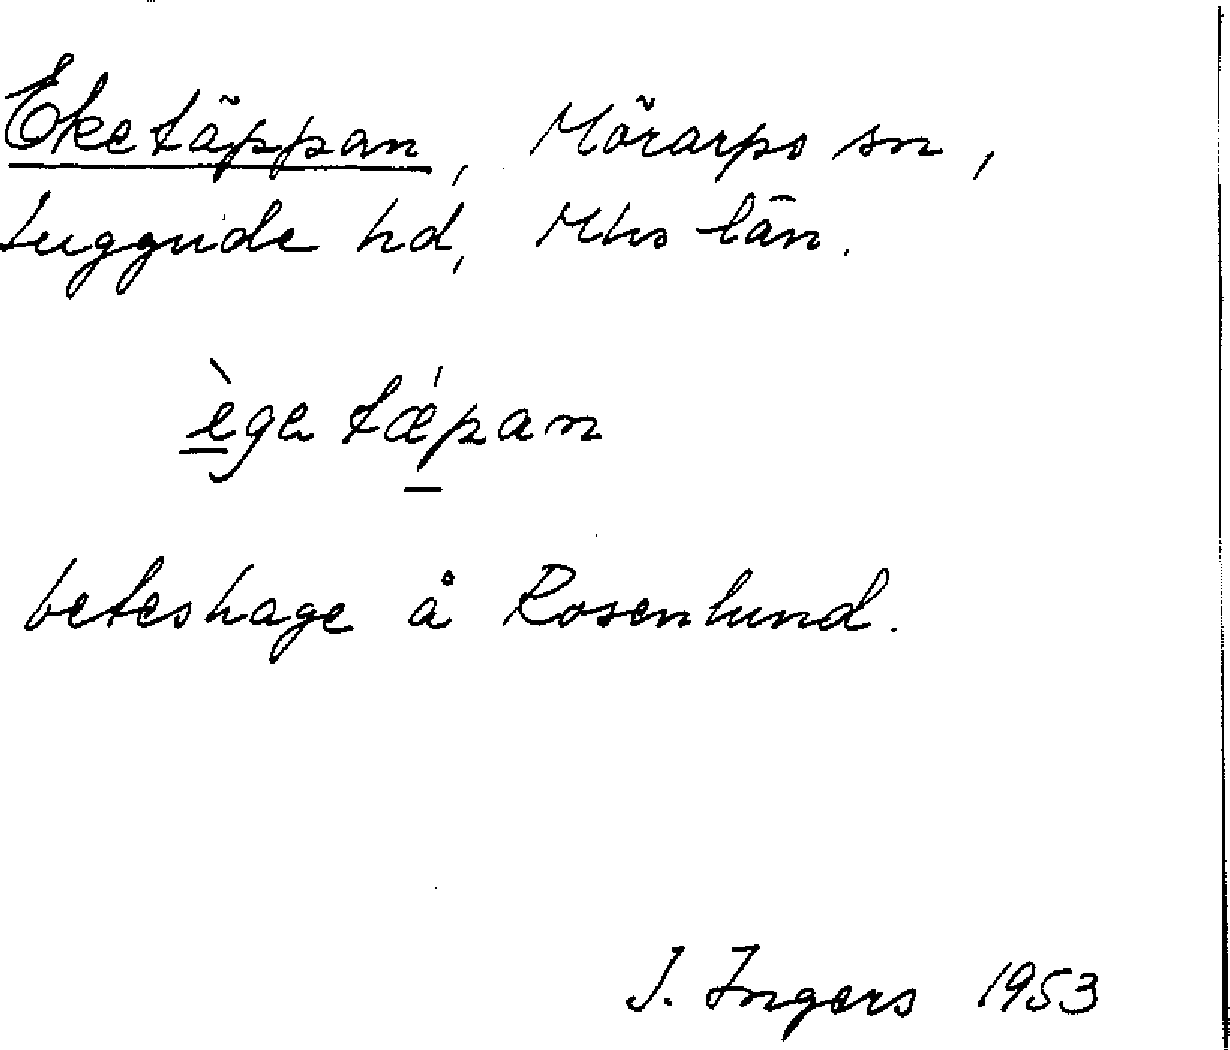 Eketäppan, Mörarps sn,
Luggude hd, Mhs län.
ège tǽpan
beteshage å Rosenlund.
I. Ingers 1953